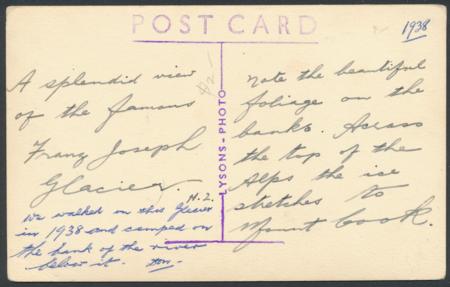 POST CARD
1938
$2-
A splendid view
of the famous
Franz Joseph
Glacier.
N.Z.
We walked on this Glacier
in 1938 and camped on
the bank of the river
below it.
LYSONS-PHOTO
Note the beautiful
foliage on the
banks. Across
the top of the
Alps the ice
stretches to
Mount Cook.